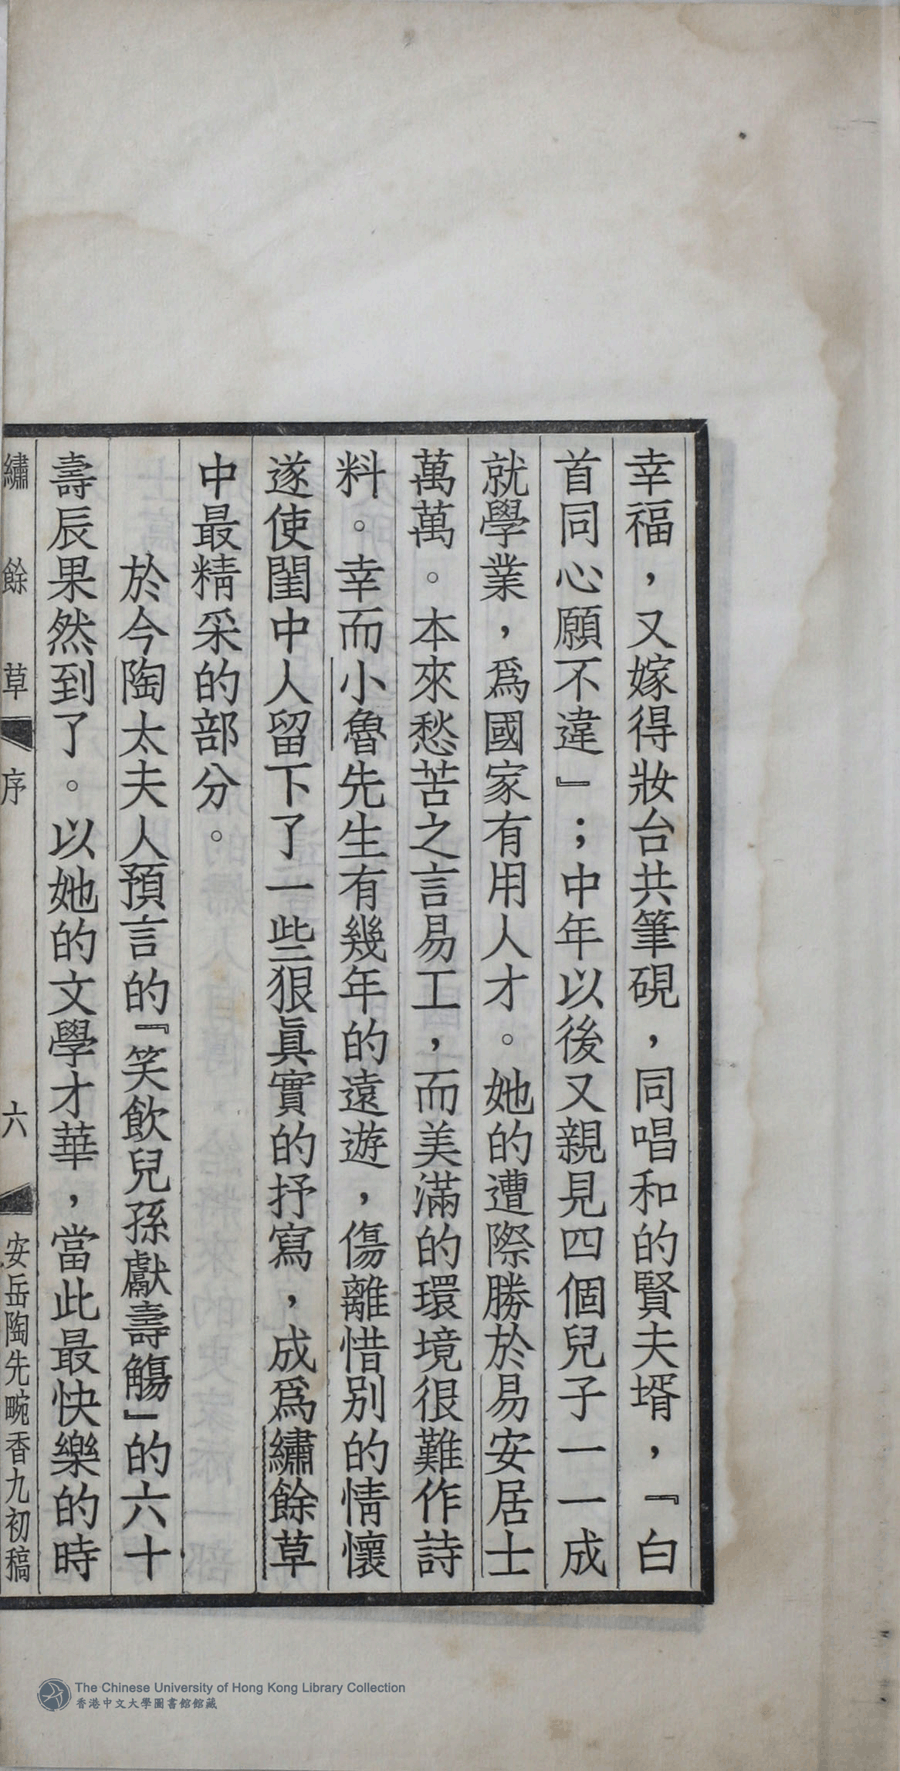 幸福，又嫁得妝台共筆硯，同唱和的賢夫壻，『白
首同心願不違』；中年以後又親見四個兒子一一成
就學業，爲國家有用人才。她的遭際勝於易安居士
萬萬。本來愁苦之言易工，而美滿的環境很難作詩
料。幸而小魯先生有幾年的遠遊，傷離惜别的情懷
遂使閨中人留下了一些狠眞實的抒寫，成爲繡餘草
中最精采的部分。
於今陶太夫人預言的『笑飲兒孫獻壽觴』的六十
壽辰果然到了。以她的文學才華，當此最快樂的時
繡餘草 序 六 安岳陶先畹香九初稿
The Chinese University of Hong Kong Library Collection
香港中文大學圖書館館藏